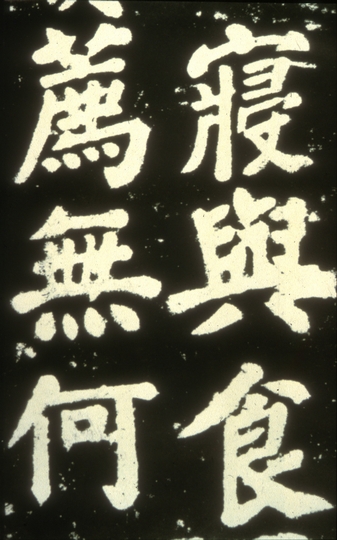 寢與食
薦無何